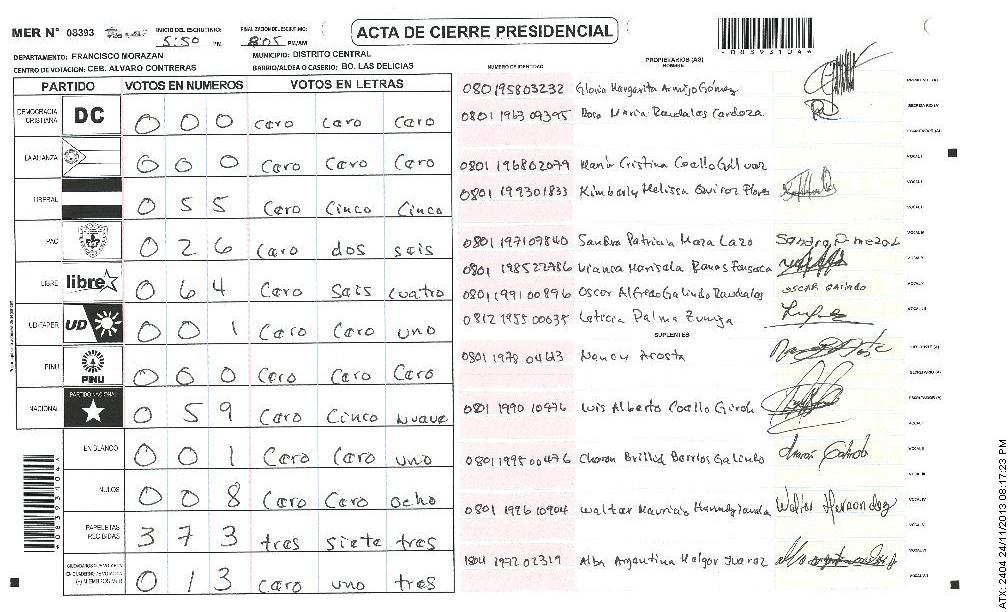 MER N° 08393 INICIO DEL ESCRUTINIO: 5:50 PM FINALIZACION DE ESCRUTINIO: 8:05 PM/AM
ACTA DE CIERRE PRESIDENCIAL
DEPARTAMENTO: FRANCISCO MORAZAN MUNICIPIO: DISTRITO CENTRAL
CENTRO DE VOTACION: CEB. ALVARO CONTRERAS BARRIO/ALDEA O CASERIO: BO. LAS DELICIAS
PARTIDO VOTOS EN NUMEROS VOTOS EN LETRAS
DEMOCRACIA CRISTIANA DC 0 0 0 cero cero cero
LA ALIANZA 0 0 0 Cero Cero Cero
LIBERAL 0 5 5 Cero Cinco Cinco
PAC 0 2 6 Cero dos seis
LIBRE libre 0 6 4 Cero Seis cuatro
UD-FAPER UD 0 0 1 Cero Cero uno
PINU PINU 0 0 0 Cero Cero Cero
NACIONAL PARTIDO NACIONAL 0 5 9 Cero Cinco nueve
EN BLANCO 0 0 1 Cero Cero uno
NULOS 0 0 8 Cero Cero ocho
PAPELETAS RECIBIDAS 3 7 3 tres siete tres
0 1 3 cero uno tres
NUMERO DE IDENTIDAD PROPIETARIOS (AS) NOMBRE
080195803232 Gloria Margarita Armijo Gómez
0801 1963 09395 Rosa Maria Raudales Cardoza
0801 196802079 Maria Cristina Coello Gálvez
0801 199301833 Kimberly Melissa Quiroz Flores
0801 197109840 Sandra Patricia Meza Lazo
0801 198522786 Vianca Marisela Banas Fonseca
0801199100896 Oscar Alfredo Galindo Raudales OSCAR GALINDO
0812 195500035 Leticia Palma Zuniga
SUPLENTES
0801 1978 04613 Nancy Acosta
0801 1990 10976 Luis Alberto Coello Girón
0801199500476 Charon Brillid Barrios Galindo
0801 1976 10904 Walter Mauricio Walter Hernandez
1804 197202319 Alba Argentina Melgar Juarez
08393104
ATX: 2404 24/11/2013 08:17:23 PM